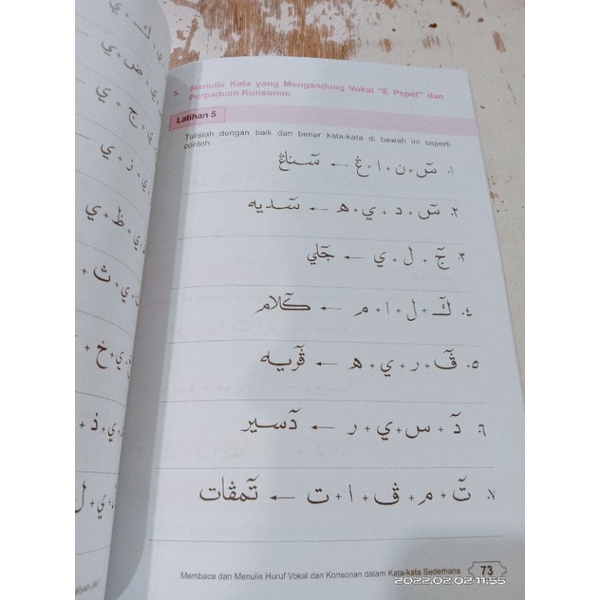 5. Menulis Kata yang Mengandung Vokal "E Pepet" dan
Perpaduan Konsonan
Latihan 5
Tulislah dengan baik dan benar kata-kata di bawah ini seperti
contoh.
١. سٓ + ن + ا + ڠ ← سٓناڠ
٢. سٓ + د + ي + ه ← سٓديه
٣. جٓ + ل + ي ← جٓلي
٤. كٓ + ل + ا + م ← كٓلام
٥. ڤٓ + ر + ي + ه ← ڤٓريه
٦. دٓ + س + ي + ر ← دٓسير
٧. تٓ + م + ڤ + ا + ت ← تٓمڤات
Membaca dan Menulis Huruf Vokal dan Konsonan dalam Kata-kata Sederhana 73
2022.02.02 11:55